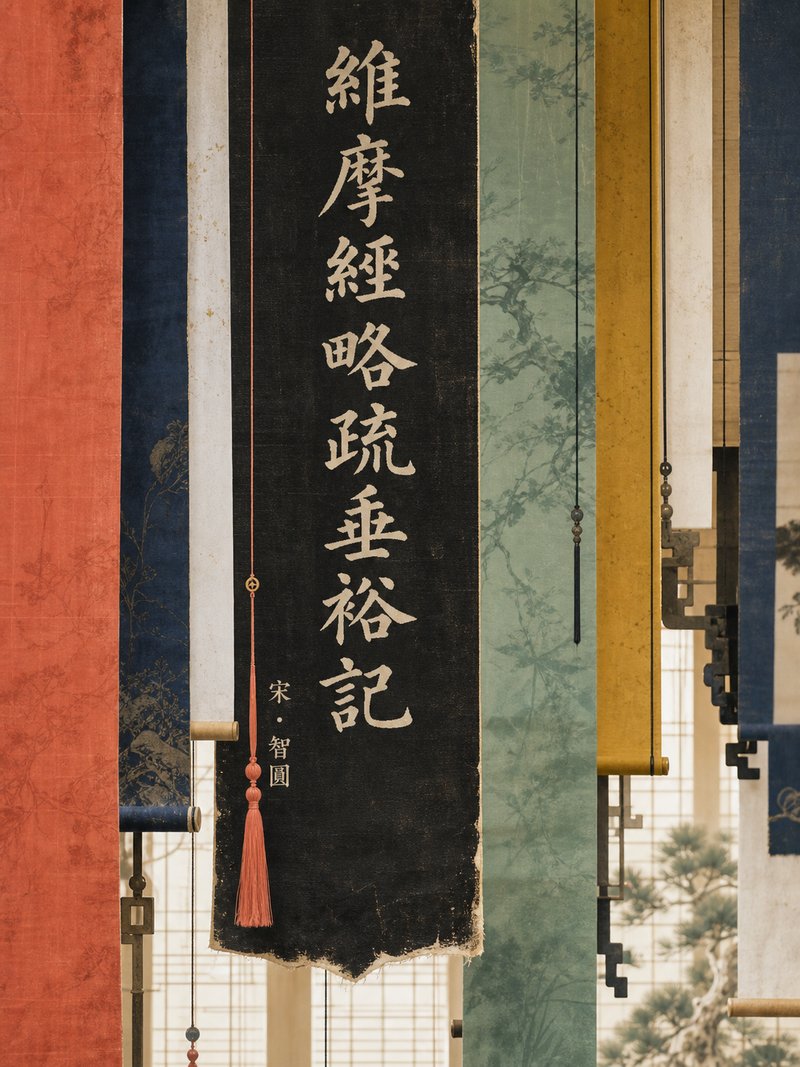 維摩經略疏垂裕記
宋・智圓